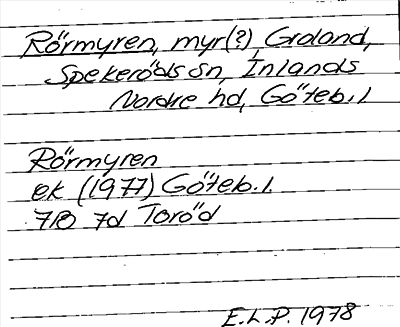 Rörmyren, myr(?) Groland,
Spekeröds sn, Inlands
Nordre hd, Göteb.l.
Rörmyren
ek (1977) Göteb.l.
7B 7d Toröd
E.L.P. 1978